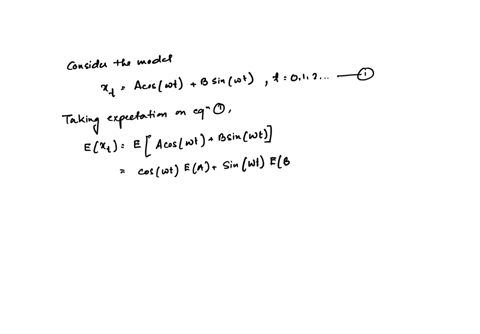 Consider the model
x_t = A cos(ωt) + B sin(ωt) , t = 0,1,2... —— ①
Taking expectation on eqⁿ ①,
E(x_t) = E[A cos(ωt) + B sin(ωt)]
= cos(ωt) E(A) + Sin(ωt) E(B